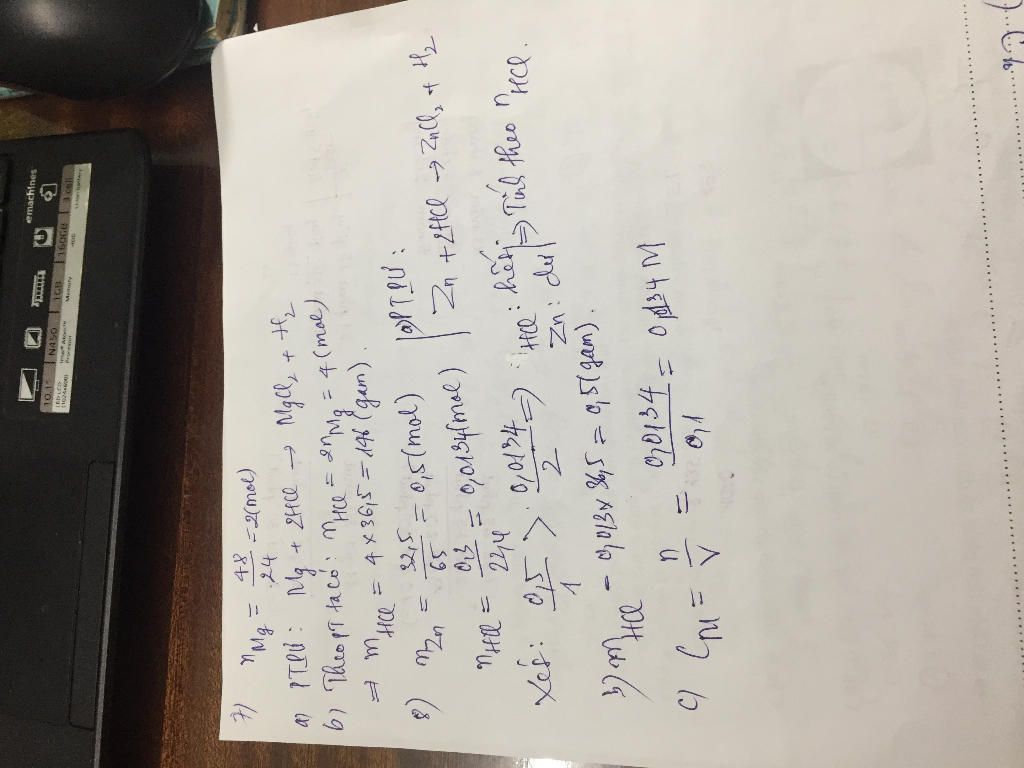 7) nMg = 48/24 = 2 (mol)
a) PTPƯ: Mg + 2HCl → MgCl2 + H2
b) Theo PT ta có: nHCl = 2nMg = 4 (mol)
⇒ mHCl = 4 x 36,5 = 146 (gam).
8) nZn = 32,5/65 = 0,5 (mol)
a) PTPƯ:
Zn + 2HCl → ZnCl2 + H2
nHCl = 0,3/22,4 = 0,0134 (mol)
Xét: 0,5/1 > 0,0134/2 ⇒ HCl: hết
Zn: dư ⇒ Tính theo nHCl.
b) mHCl = 0,013 x 36,5 = 0,5 (gam).
c) CM = n/V = 0,0134/0,1 = 0,134 M
ermachines
10.1"
LED LCD
(1024x600)
N450
Intel® Atom™
Processor
1GB
Memory
160GB
HDD
3 cell
Li-ion battery